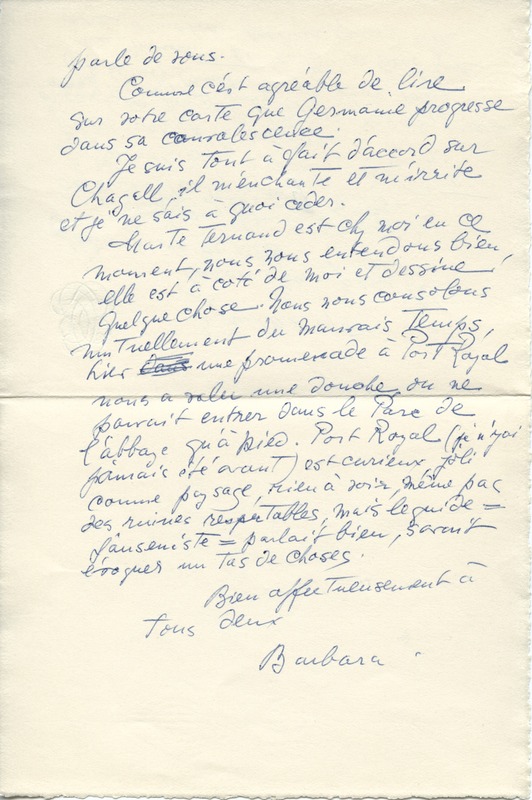 parle de vous.
Comme c'est agréable de lire
sur votre carte que Germaine progresse
dans sa convalescence.
Je suis tout à fait d'accord sur
Chagall, il m'enchante et m'irrite
et je ne sais à quoi céder.
Fernand est chez moi en ce
moment, nous nous entendons bien,
elle est à coté de moi et dessine
quelque chose. Nous nous consolons
mutuellement du mauvais Temps,
hier une promenade à Port Royal
nous a valu une douche, on ne
pouvait entrer dans le Parc de
l'abbaye qu'à pied. Port Royal (je n'y ai
jamais été avant) est curieux, joli
comme paysage, rien à voir même pas
des ruines respectables, mais le guide =
Janseniste = parlait bien, savait
évoquer un Tas de choses.
Bien affectueusement à
tous deux
Barbara